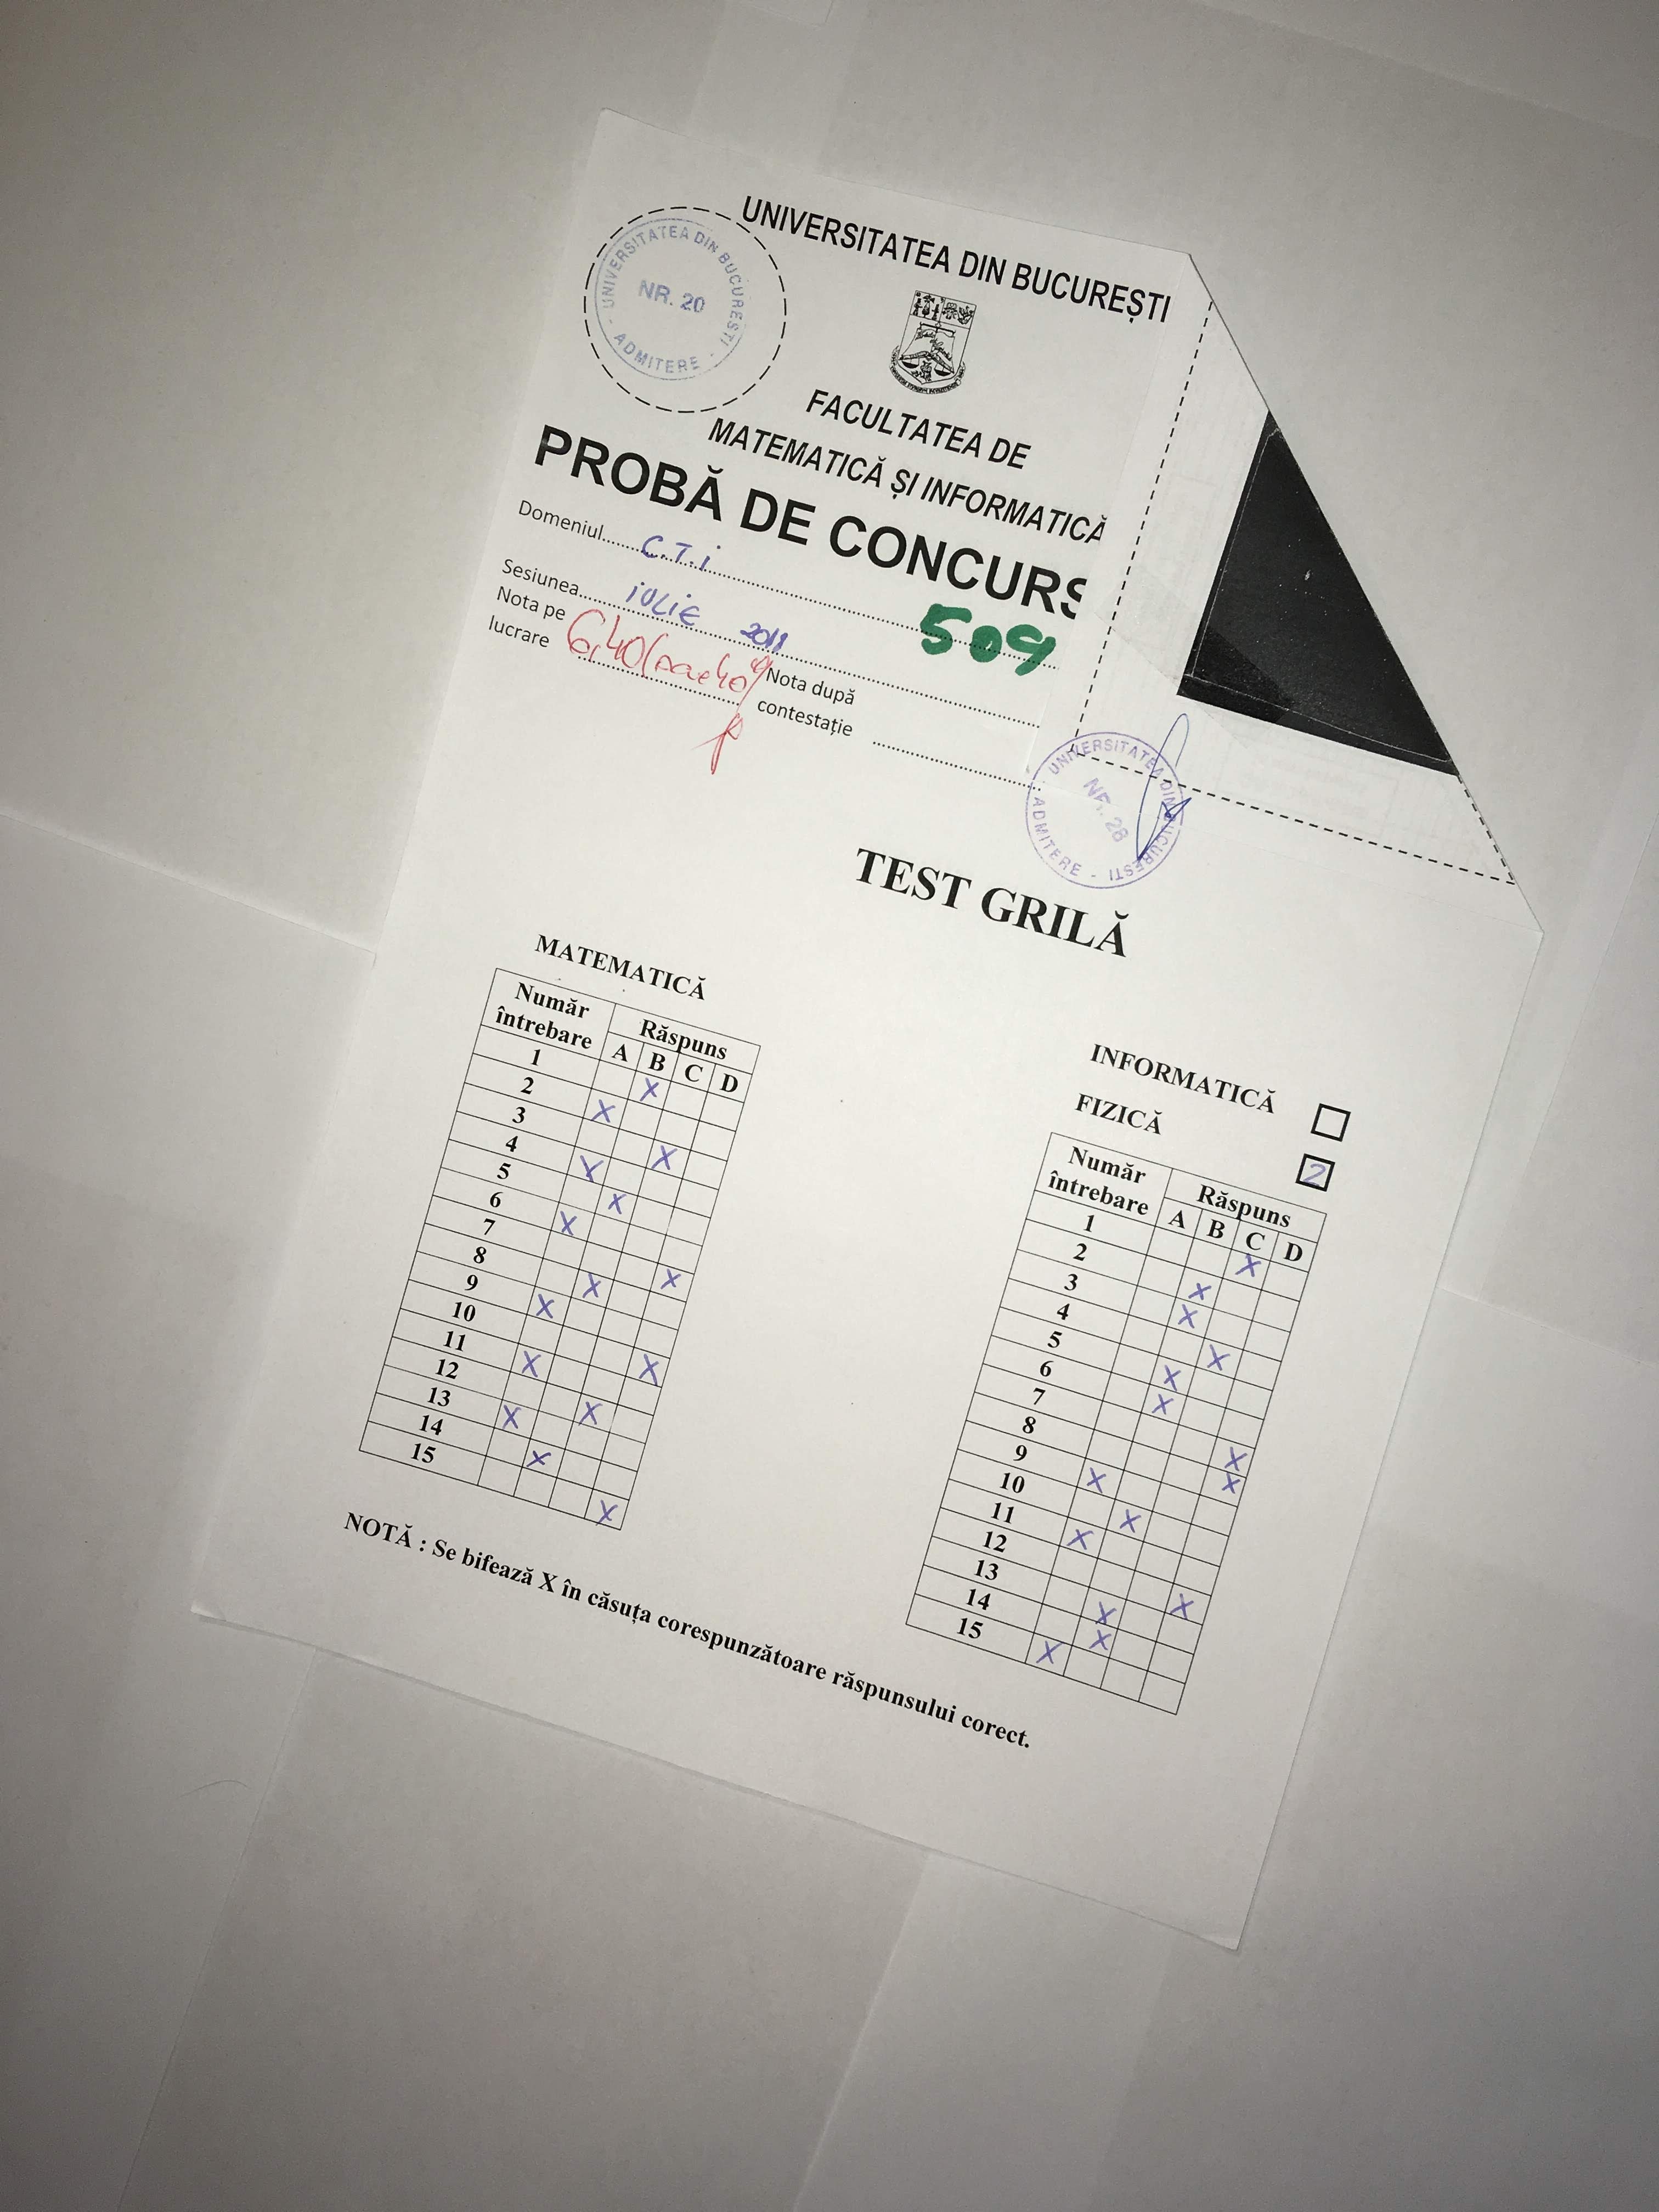 UNIVERSITATEA DIN BUCUREȘTI
UNIVERSITATEA DIN BUCURESTI
NR. 20
ADMITERE
FACULTATEA DE
MATEMATICĂ ȘI INFORMATICĂ
PROBĂ DE CONCURS
Domeniul C.T.i
Sesiunea iULIE 2011
509
Nota pe
lucrare 6,40
Nota după
contestație
UNIVERSITATEA DIN BUCURESTI
NR. 28
ADMITERE
TEST GRILĂ
MATEMATICĂ
Număr întrebare Răspuns
A B C D
1 X
2 X
3 X
4 X
5 X
6 X
7 X
8 X
9 X
10 X
11 X
12 X
13 X
14 X
15 X
INFORMATICĂ
FIZICĂ 2
Număr întrebare Răspuns
A B C D
1 X
2 X
3 X
4 X
5 X
6 X
7 X
8 X
9 X
10 X
11 X
12 X
13 X
14 X
15 X
NOTĂ : Se bifează X în căsuța corespunzătoare răspunsului corect.